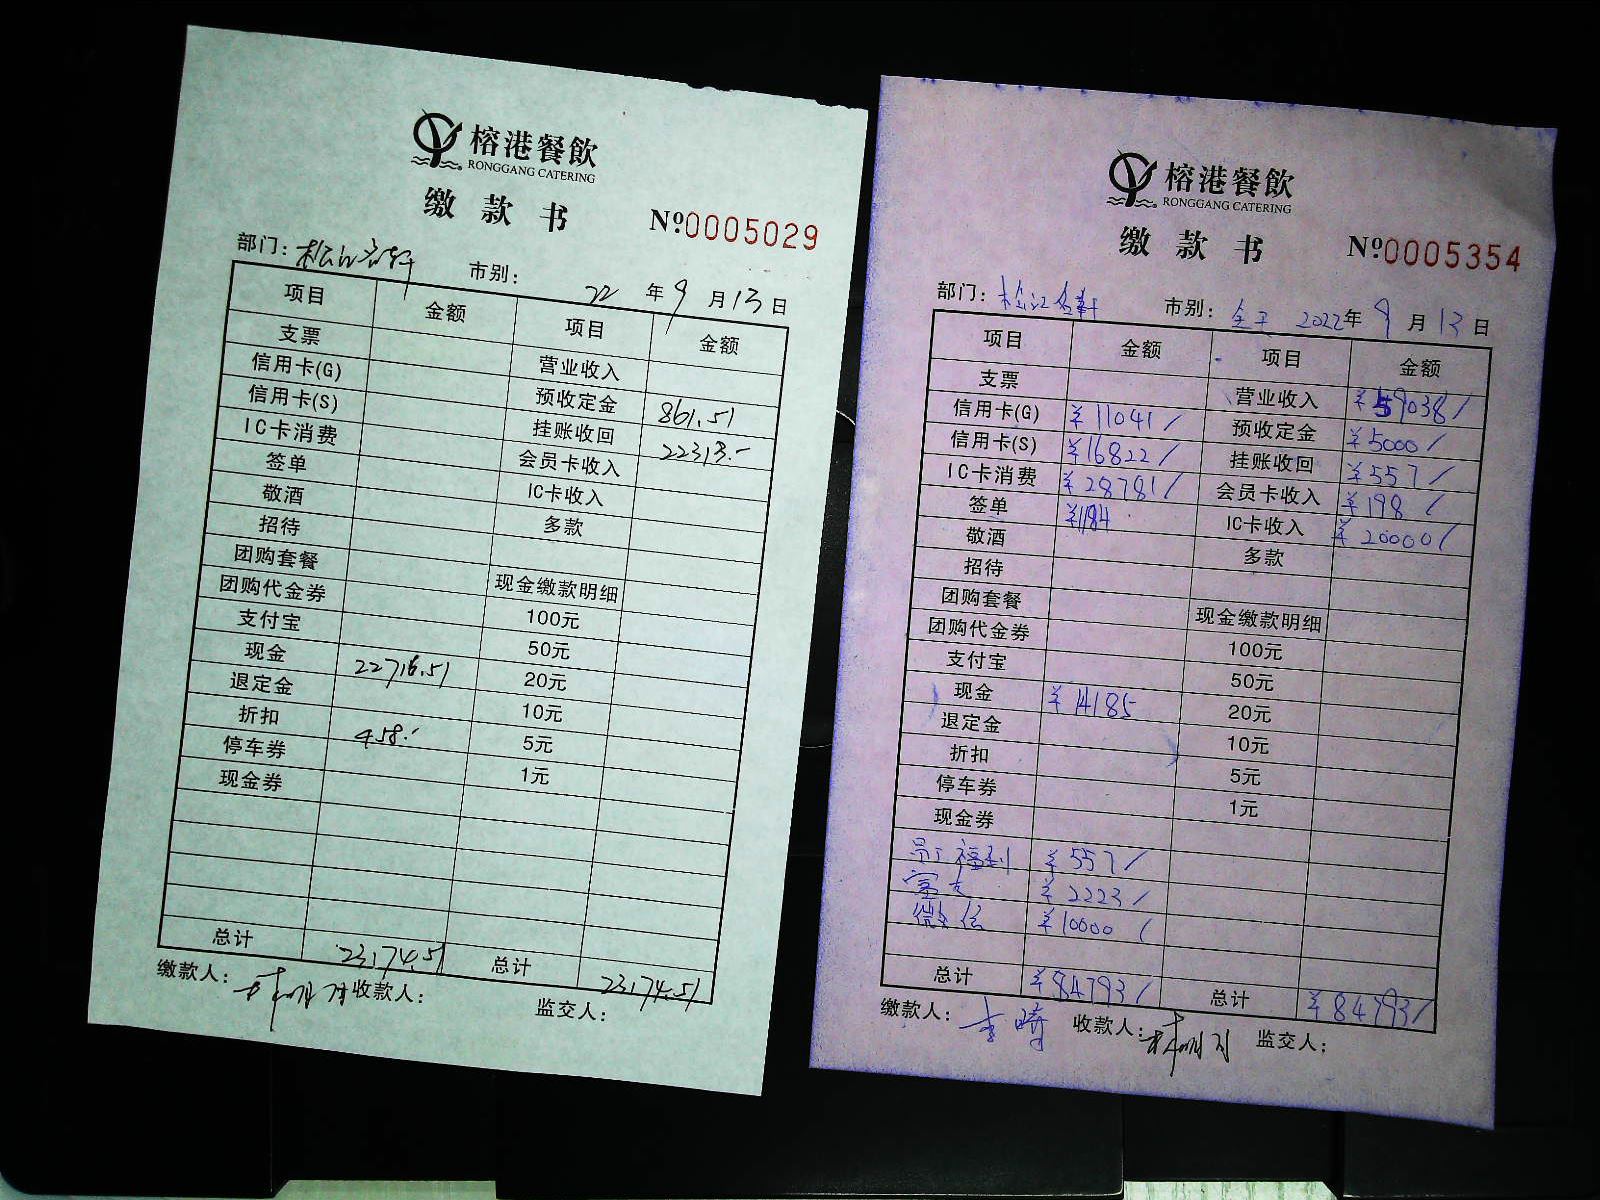 榕港餐飲
RONGGANG CATERING
缴款书 №0005029
部门: 松江名轩 市别: 22年9月13日
项目 金额 项目 金额
支票 营业收入
信用卡(G) 预收定金 861.51
信用卡(S) 挂账收回 22313.-
IC卡消费 会员卡收入
签单 IC卡收入
敬酒 多款
招待
团购套餐 现金缴款明细
团购代金券 100元
支付宝 50元
现金 22716.51 20元
退定金 10元
折扣 458.- 5元
停车券 1元
现金券
总计 23174.51 总计 23174.51
缴款人: 收款人: 监交人:
榕港餐飲
RONGGANG CATERING
缴款书 №0005354
部门: 松江名轩 市别: 全天 2022年9月13日
项目 金额 项目 金额
支票 营业收入 ¥59038/
信用卡(G) ¥11041/ 预收定金 ¥5000/
信用卡(S) ¥16822/ 挂账收回 ¥557/
IC卡消费 ¥28781/ 会员卡收入 ¥198/
签单 ¥1184 IC卡收入 ¥20000/
敬酒 多款
招待
团购套餐 现金缴款明细
团购代金券 100元
支付宝 50元
现金 ¥14185 20元
退定金 10元
折扣 5元
停车券 1元
现金券
员工福利 ¥557/
¥2223/
微信 ¥10000/
总计 ¥84793/ 总计 ¥84793/
缴款人: 收款人: 监交人: